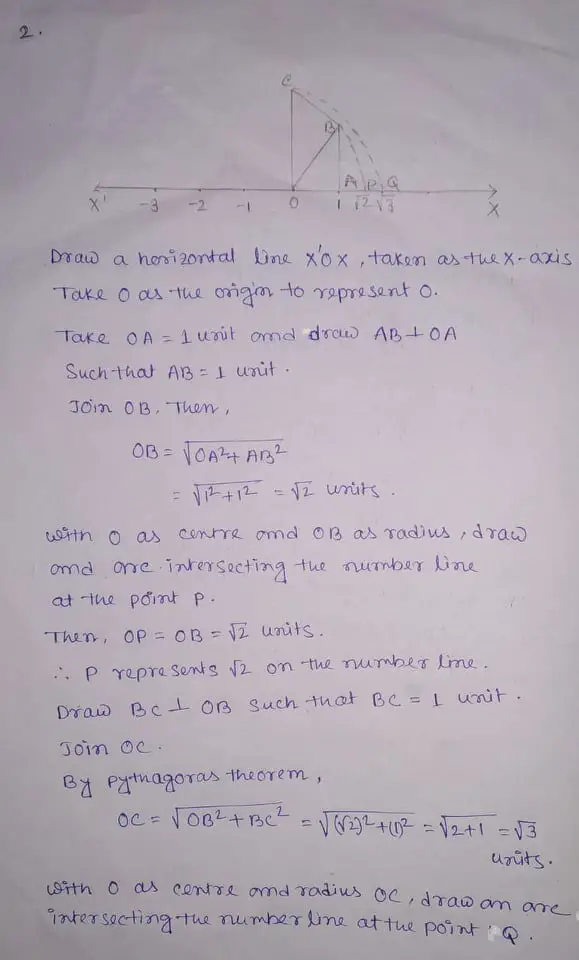 2.
C
B
A P Q
X' -3 -2 -1 0 1 √2 √3 X
Draw a horizontal line X'OX, taken as the X-axis
Take O as the origin to represent 0.
Take OA = 1 unit and draw AB ⊥ OA
Such that AB = 1 unit.
Join OB. Then,
OB = √(OA² + AB²)
= √(1² + 1²) = √2 units.
with O as centre and OB as radius, draw
and arc intersecting the number line
at the point P.
Then, OP = OB = √2 units.
∴ P represents √2 on the number line.
Draw BC ⊥ OB such that BC = 1 unit.
Join OC.
By pythagoras theorem,
OC = √(OB² + BC²) = √((√2)² + (1)²) = √(2+1) = √3
units.
with O as centre and radius OC, draw an arc
intersecting the number line at the point Q.